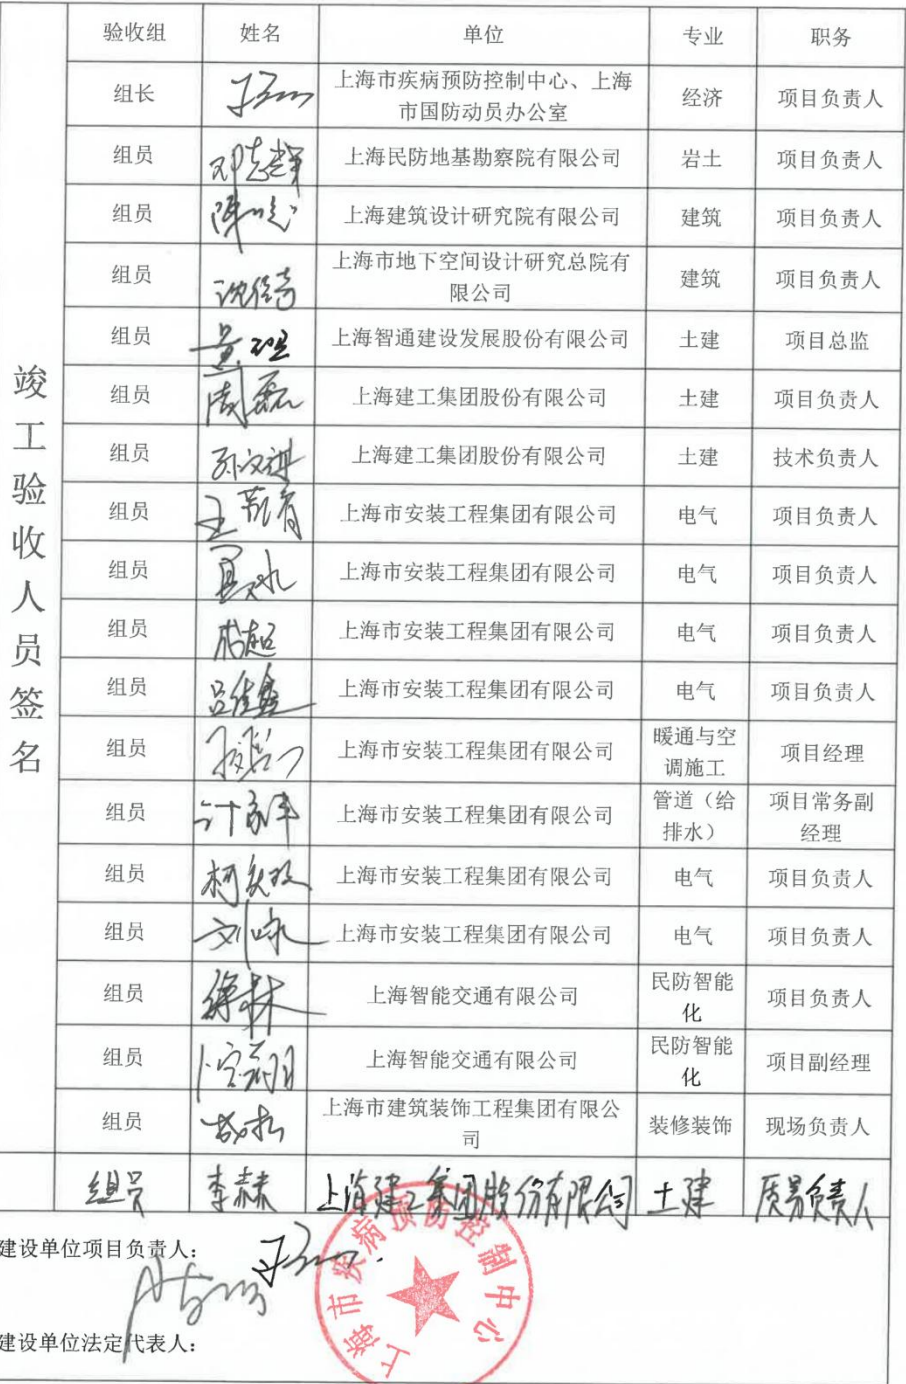 竣工验收人员签名
验收组 姓名 单位 专业 职务
组长 上海市疾病预防控制中心、上海
市国防动员办公室 经济 项目负责人
组员 邓志辉 上海民防地基勘察院有限公司 岩土 项目负责人
组员 上海建筑设计研究院有限公司 建筑 项目负责人
组员 上海市地下空间设计研究总院有
限公司 建筑 项目负责人
组员 上海智通建设发展股份有限公司 土建 项目总监
组员 周磊 上海建工集团股份有限公司 土建 项目负责人
组员 孙文祺 上海建工集团股份有限公司 土建 技术负责人
组员 上海市安装工程集团有限公司 电气 项目负责人
组员 上海市安装工程集团有限公司 电气 项目负责人
组员 上海市安装工程集团有限公司 电气 项目负责人
组员 吕佳鑫 上海市安装工程集团有限公司 电气 项目负责人
组员 上海市安装工程集团有限公司 暖通与空
调施工 项目经理
组员 上海市安装工程集团有限公司 管道（给
排水） 项目常务副
经理
组员 上海市安装工程集团有限公司 电气 项目负责人
组员 刘咏 上海市安装工程集团有限公司 电气 项目负责人
组员 徐林 上海智能交通有限公司 民防智能
化 项目负责人
组员 上海智能交通有限公司 民防智能
化 项目副经理
组员 上海市建筑装饰工程集团有限公
司 装修装饰 现场负责人
组员 李赫 上海建工集团股份有限公司 土建 质量负责人
建设单位项目负责人：
上海市疾病预防控制中心
建设单位法定代表人：